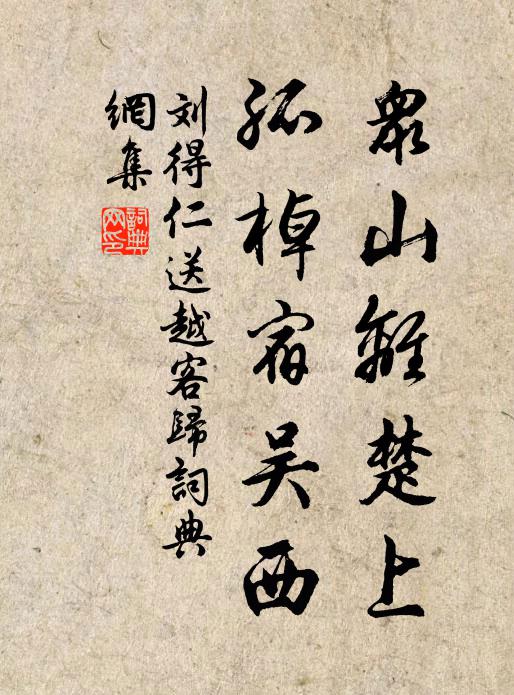 眾山離楚上
孤棹宿吴西
刘得仁送越客歸詞典
網集
詞典
网印